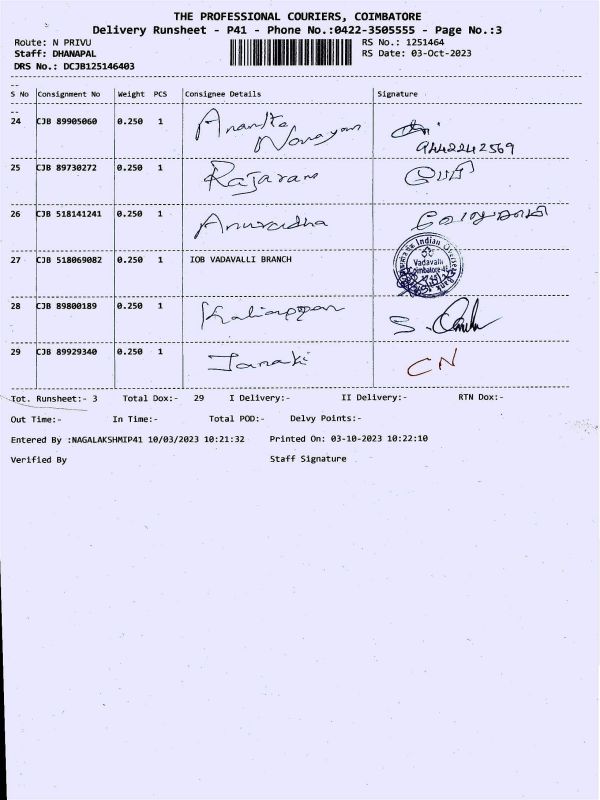 THE PROFESSIONAL COURIERS, COIMBATORE
Delivery Runsheet - P41 - Phone No.:0422-3505555 - Page No.:3
Route: N PRIVU RS No.: 1251464
Staff: DHANAPAL RS Date: 03-Oct-2023
DRS No.: DCJB125146403
S No Consignment No Weight PCS Consignee Details Signature
24 CJB 89905060 0.250 1 Anantha Narayan
9442242569
25 CJB 89730272 0.250 1 Rajaram
26 CJB 518141241 0.250 1 Anuradha
27 CJB 518069082 0.250 1 IOB VADAVALLI BRANCH Indian Overseas Bank Vadavalli Coimbatore-41
28 CJB 89800189 0.250 1 Kaliappan
29 CJB 89929340 0.250 1 Janaki CN
Tot. Runsheet:- 3 Total Dox:- 29 I Delivery:- II Delivery:- RTN Dox:-
Out Time:- In Time:- Total POD:- Delvy Points:-
Entered By :NAGALAKSHMIP41 10/03/2023 10:21:32 Printed On: 03-10-2023 10:22:10
Verified By Staff Signature